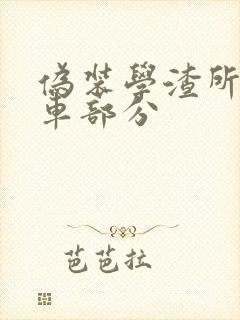 偽裝學渣所
車部分
芭芭拉